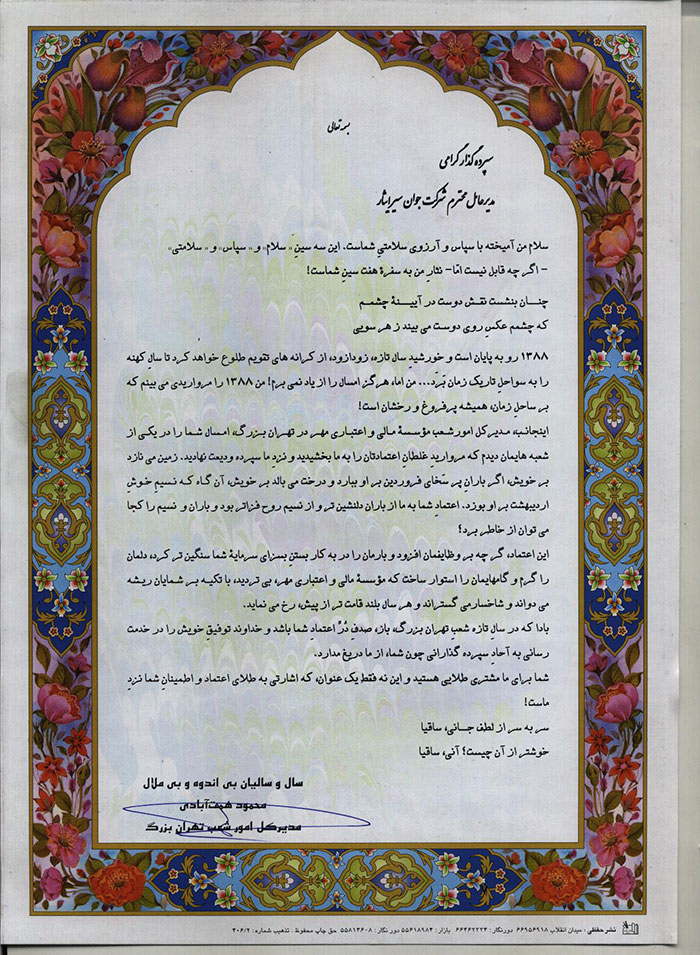 بسمه تعالی
سپرده گذار گرامی
مدیرعامل محترم شرکت جوان سیر ایثار
سلام من آمیخته با سپاس و آرزوی سلامتی شماست. این سه سینِ «سلام» و «سپاس» و «سلامتی»
- اگر چه قابل نیست امّا - نثارِ من به سفرهٔ هفت سینِ شماست!
چنان بنشست نقش دوست در آیینهٔ چشمم
که چشمم عکسِ روی دوست می بیند ز هر سویی
۱۳۸۸ رو به پایان است و خورشیدِ سال تازه، زودازود، از کرانه های تقویم طلوع خواهد کرد تا سالِ کهنه
را به سواحلِ تاریک زمان بَرَد... من اما، هرگز امسال را از یاد نمی برم! من ۱۳۸۸ را مرواریدی می بینم که
بر ساحلِ زمان، همیشه پرفروغ و رخشان است!
اینجانب، مدیرکل امور شعب مؤسسهٔ مالی و اعتباری مهر در تهران بزرگ، امسال شما را در یکی از
شعبه هایمان دیدم که مرواریدِ غلطانِ اعتمادتان را به ما بخشیدید و نزدِ ما سپرده ودیعت نهادید. زمین می نازد
بر خویش، اگر بارانِ پر سَخای فروردین بر او ببارد و درخت می بالد بر خویش، آن گاه که نسیم خوش
اردیبهشت بر او بوزد. اعتمادِ شما به ما از باران دلنشین تر و از نسیم روح فزاتر بود و باران و نسیم را کجا
می توان از خاطر برد؟
این اعتماد، گر چه بر وظایفمان افزود و بارمان را در به کار بستنِ بسزای سرمایهٔ شما سنگین تر کرد، دلمان
را گرم و گامهایمان را استوار ساخت که مؤسسهٔ مالی و اعتباری مهر، بی تردید، با تکیه بر شمایان ریشه
می دواند و شاخسار می گستراند و هر سال بلند قامت تر از پیش، رخ می نماید.
بادا که در سال تازه شعبِ تهران بزرگ، باز، صدفِ دُرِّ اعتمادِ شما باشد و خداوند توفیقِ خویش را در خدمت
رسانی به آحادِ سپرده گذارانی چون شما، از ما دریغ مدارد.
شما برای ما مشتری طلایی هستید و این نه فقط یک عنوان، که اشارتی به طلای اعتماد و اطمینانِ شما نزدِ
ماست!
سر به سر از لطف جانی، ساقیا
خوشتر از آن چیست؟ آنی، ساقیا
سال و سالیان بی اندوه و بی ملال
محمود همت‌آبادی
مدیرکل امور شعب تهران بزرگ
نشر حفظی: میدان انقلاب ۶۶۹۵۶۹۱۸ دورنگار: ۶۶۴۶۲۲۲۴ بازار: ۵۵۶۱۸۹۸۴ دور نگار: ۵۵۸۱۴۶۰۸ حق چاپ محفوظ. تذهیب شماره: ۴۰۶/۲